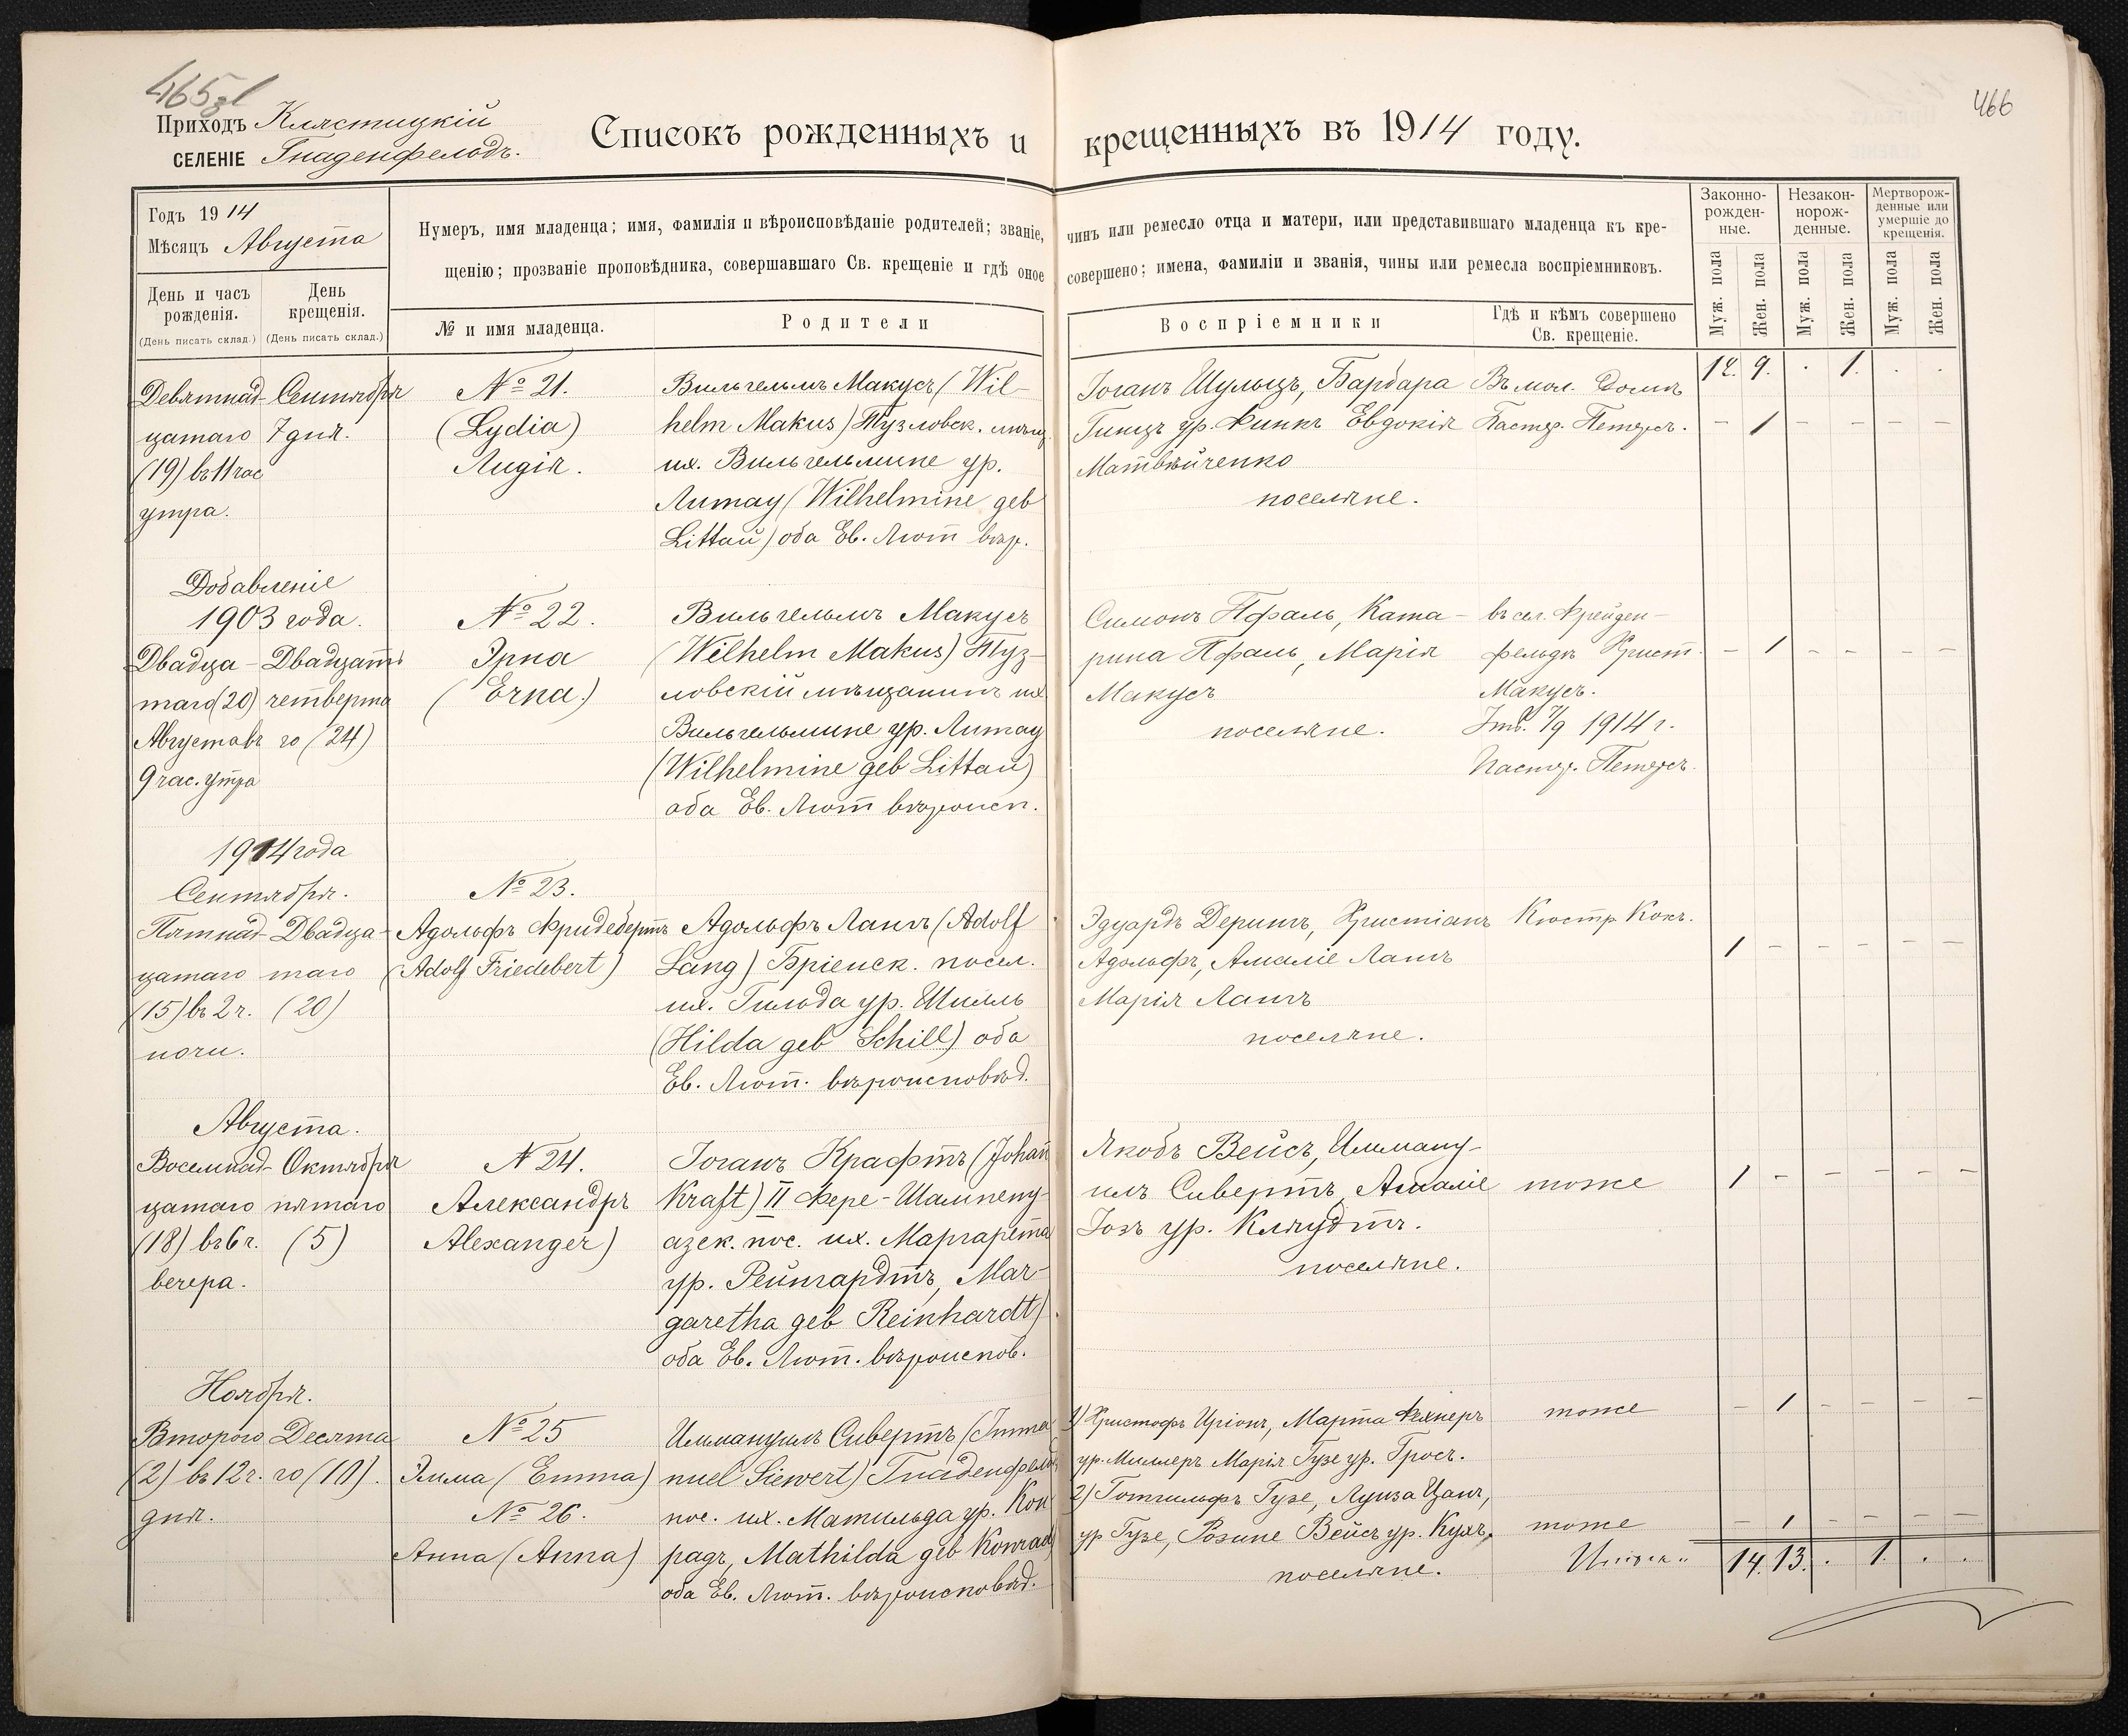 465
466
Приходъ Клястицкій
селеніе Гнаденфельдъ.
Списокъ рожденныхъ и крещенныхъ въ 1914 году.
Годъ 1914
Мѣсяцъ Августа
День и часъ рожденія.
(День писать склад.)
День крещенія.
(День писать склад.)
Нумеръ, имя младенца; имя, фамилія и вѣроисповѣданіе родителей; званіе, чинъ или ремесло отца и матери, или представившаго младенца къ кре-
щенію; прозваніе проповѣдника, совершавшаго Св. крещеніе и гдѣ оное совершено; имена, фамиліи и званія, чины или ремесла воспріемниковъ.
№ и имя младенца.
Родители
Воспріемники
Гдѣ и кѣмъ совершено
Св. крещеніе.
Законно-
рожден-
ные.
Незакон-
норож-
денные.
Мертворож-
денные или
умершіе до
крещенія.
Муж. пола
Жен. пола
Муж. пола
Жен. пола
Муж. пола
Жен. пола
12. 9. . 1. . .
Девятнад-
цатаго
(19) въ 11 час
утра.
Сентября
7 дня.
№ 21.
(Lydia)
Лидія.
Вильгельмъ Макусъ (Wil-
helm Makus) Тузловск. мѣщ.
их. Вильгельмине ур.
Литау (Wilhelmine geb
Littau) оба Ев. Лют вѣр.
Іоганъ Шульцъ, Барбара
Гинцъ ур. Финкъ Евдокія
Матвѣйченко
поселяне.
Въ мол. домѣ
Пастор. Петерсъ.
— 1 — — — —
Добавленіе
1903 года.
Двадца-
таго (20)
Августа въ
9 час. утра
Двадцать
четверта
го (24)
№ 22.
Эрна
(Erna)
Вильгельмъ Макусъ
(Wilhelm Makus) Туз-
ловскій мѣщанинъ их
Вильгельмине ур. Литау
(Wilhelmine geb Littau)
оба Ев. Лют вѣроисп.
Симонъ Пфаль, Ката-
рина Пфаль, Марія
Макусъ
поселяне.
въ сел. Фрейден-
фельдъ Христ.
Макусъ.
7/9 1914 г.
Пастор. Петерсъ.
— 1 — — — —
1914 года
Сентября.
Пятнад-
цатаго
(15) въ 2 ч.
ночи.
Двадца-
таго
(20)
№ 23.
Адольфъ Фридебертъ
(Adolf Friedebert)
Адольфъ Лангъ (Adolf
Lang) Бріенск. посел.
их. Гильда ур. Шилль
(Hilda geb Schill) оба
Ев. Лют. вѣроисповѣд.
Эдуардъ Дерингъ, Христіанъ
Адольфъ, Амаліе Лангъ
Марія Лангъ
поселяне.
Кюстр. Кокъ.
1 — — — — —
Августа.
Восемнад-
цатаго
(18) въ 6 ч.
вечера.
Октября
пятаго
(5)
№ 24.
Александръ
Alexanger)
Іоганъ Крафтъ (Johan
Kraft) II Фере-Шампену-
азск. пос. их. Маргарета
ур. Рейнгардтъ, Mar-
garetha geb Reinhardt)
оба Ев. Лют. вѣроиспов.
Якобъ Вейсъ, Имману
илъ Сивертъ, Амаліе
Іозъ ур. Кляудтъ.
поселяне.
тоже
1 — — — — —
Ноября.
Второго
(2) въ 12 ч.
дня.
Десята
го (10).
№ 25
Эмма (Emma)
№ 26.
Анна (Anna)
Иммануилъ Сивертъ (Imma
nuel Siewert) Гнаденфельд
пос. их. Матильда ур. Кон
радъ, Mathilda geb Konrad)
оба Ев. Лют. вѣроисповѣд.
1) Христофъ Иріонъ, Марта Фехнеръ
ур. Миллеръ Марія Гузе ур. Гросъ.
2) Готгильфъ Гузе, Луиза Цанъ,
ур Гузе, Розине Вейсъ ур. Кухъ,
поселяне.
тоже
— 1 — — — —
тоже
— 1 — — — —
14. 13. . 1. . .